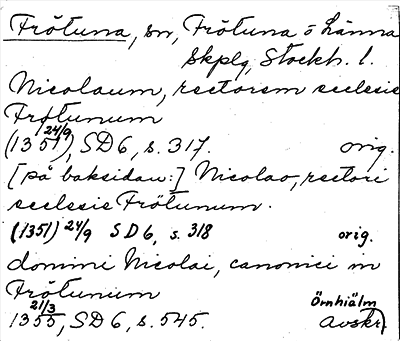 Frötuna, sn, Frötuna o Länna
Skplg, Stockh. l.
Nicolaum, rectorem ecclesie
Frøtunum
(1351) 24/9, SD 6, s. 317. orig.
[på baksidan:] Nicolao, rectori
ecclesie Frötunum.
(1351) 24/9 SD 6, s. 318 orig.
domini Nicolai, canonici in
Frötunum
1355 21/3, SD 6, s. 545. Örnhiälm
Avskr.